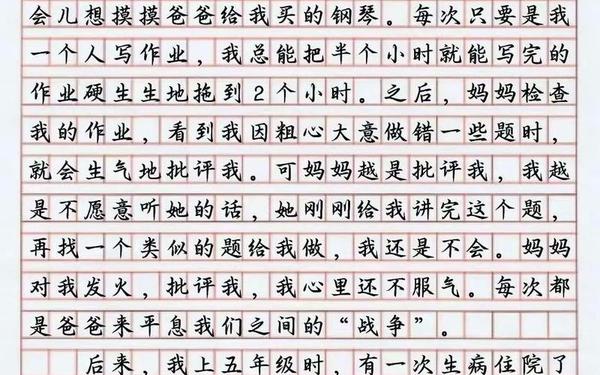 会儿想摸摸爸爸给我买的钢琴。每次只要是我
一个人写作业，我总能把半个小时就能写完的
作业硬生生地拖到2个小时。之后，妈妈检查
我的作业，看到我因粗心大意做错一些题时，
就会生气地批评我。可妈妈越是批评我，我越
是不愿意听她的话，她刚刚给我讲完这个题，
再找一个类似的题给我做，我还是不会。妈妈
对我发火，批评我，我心里还不服气。每次都
是爸爸来平息我们之间的“战争”。
后来，我上五年级时，有一次生病住院了